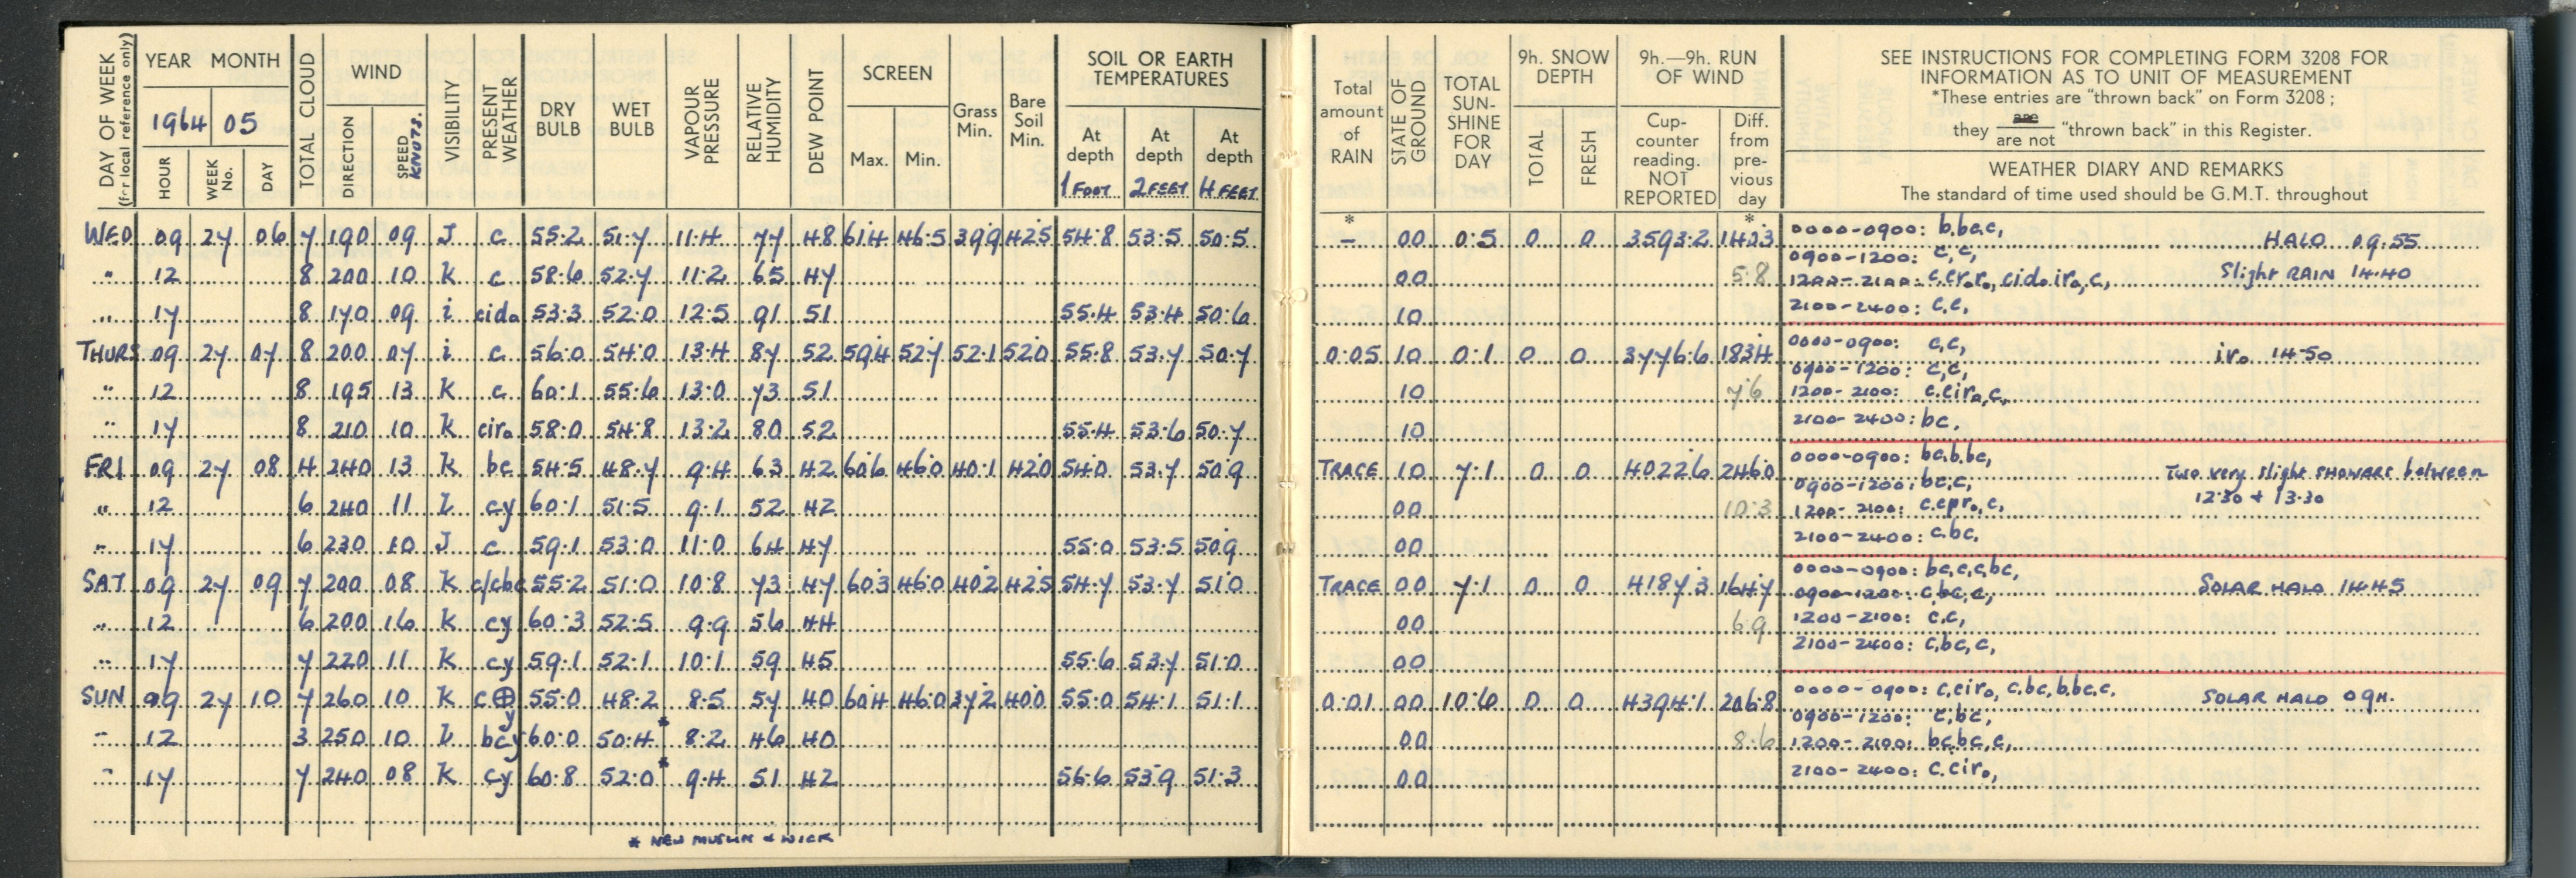 DAY OF WEEK
(for local reference only)
YEAR MONTH
1964 05
HOUR WEEK No. DAY
TOTAL CLOUD
WIND
DIRECTION SPEED KNOTS.
VISIBILITY
PRESENT WEATHER
DRY BULB
WET BULB
VAPOUR PRESSURE
RELATIVE HUMIDITY
DEW POINT
SCREEN
Max. Min.
Grass Min.
Bare Soil Min.
SOIL OR EARTH TEMPERATURES
At depth 1 FOOT
At depth 2 FEET
At depth 4 FEET
WED 09 27 06 7 190 09 J c 55.2 51.7 11.4 77 48 61.4 46.5 39.9 42.5 54.8 53.5 50.5
" 12 8 200 10 K c 58.6 52.7 11.2 65 47
" 17 8 170 09 i cido 53.3 52.0 12.5 91 51 55.4 53.4 50.6
THURS 09 27 07 8 200 07 i c 56.0 54.0 13.4 87 52 59.4 52.7 52.1 52.0 55.8 53.7 50.7
" 12 8 195 13 K c 60.1 55.6 13.0 73 51
" 17 8 210 10 K ciro 58.0 54.8 13.2 80 52 55.4 53.6 50.7
FRI 09 27 08 4 240 13 K bc 54.5 48.7 9.4 63 42 60.6 46.0 40.1 42.0 54.0 53.7 50.9
" 12 6 240 11 L cy 60.1 51.5 9.1 52 42
" 17 6 230 10 J c 59.1 53.0 11.0 64 47 55.0 53.5 50.9
SAT 09 27 09 7 200 08 K c/cbc 55.2 51.0 10.8 73 47 60.3 46.0 40.2 42.5 54.7 53.7 51.0
" 12 6 200 16 K cy 60.3 52.5 9.9 56 44
" 17 7 220 11 K cy 59.1 52.1 10.1 59 45 55.6 53.7 51.0
SUN 09 27 10 7 260 10 K c⊕y 55.0 48.2 8.5 57 40 60.4 46.0 37.2 40.0 55.0 54.1 51.1
" 12 3 250 10 L bcy 60.0 50.4* 8.2 46 40
" 17 7 240 08 K cy 60.8 52.0* 9.4 51 42 56.6 53.9 51.3
* NEW MUSLIN & WICK
Total amount of RAIN
STATE OF GROUND
TOTAL SUN-SHINE FOR DAY
9h. SNOW DEPTH
TOTAL FRESH
9h.—9h. RUN OF WIND
Cup-counter reading. NOT REPORTED
Diff. from pre-vious day
SEE INSTRUCTIONS FOR COMPLETING FORM 3208 FOR
INFORMATION AS TO UNIT OF MEASUREMENT
*These entries are "thrown back" on Form 3208;
they are / are not "thrown back" in this Register.
WEATHER DIARY AND REMARKS
The standard of time used should be G.M.T. throughout
* *
– 00 0.5 0 0 3593.2 140.3 0000-0900: b.bc,c, HALO 09.55
0900-1200: c,c,
00 5.8 1200-2100: c.cro.ro, cido.iro,c, Slight RAIN 14.40
10 2100-2400: c.c,
0.05 10 0.1 0 0 3776.6 183.4 0000-0900: c,c, iro 14.50
0900-1200: c,c,
10 7.6 1200-2100: c.ciro,c,
10 2100-2400: bc.
TRACE 10 7.1 0 0 4022.6 246.0 0000-0900: bc,b.bc, Two very slight SHOWERS between
0900-1200: bc,c, 12.30 + 13.30
00 10.3 1200-2100: c.cpro,c,
00 2100-2400: c.bc.
TRACE 00 7.1 0 0 4187.3 164.7 0000-0900: bc,c,c,bc, SOLAR HALO 14.45
0900-1200: c,bc,c,
00 6.9 1200-2100: c.c,
00 2100-2400: c,bc,c,
0.01 00 10.6 0 0 4394.1 206.8 0000-0900: c,ciro, c.bc,b.bc,c. SOLAR HALO 09H.
0900-1200: c,bc,
00 8.6 1200-2100: bc,bc,c,
00 2100-2400: c.ciro,